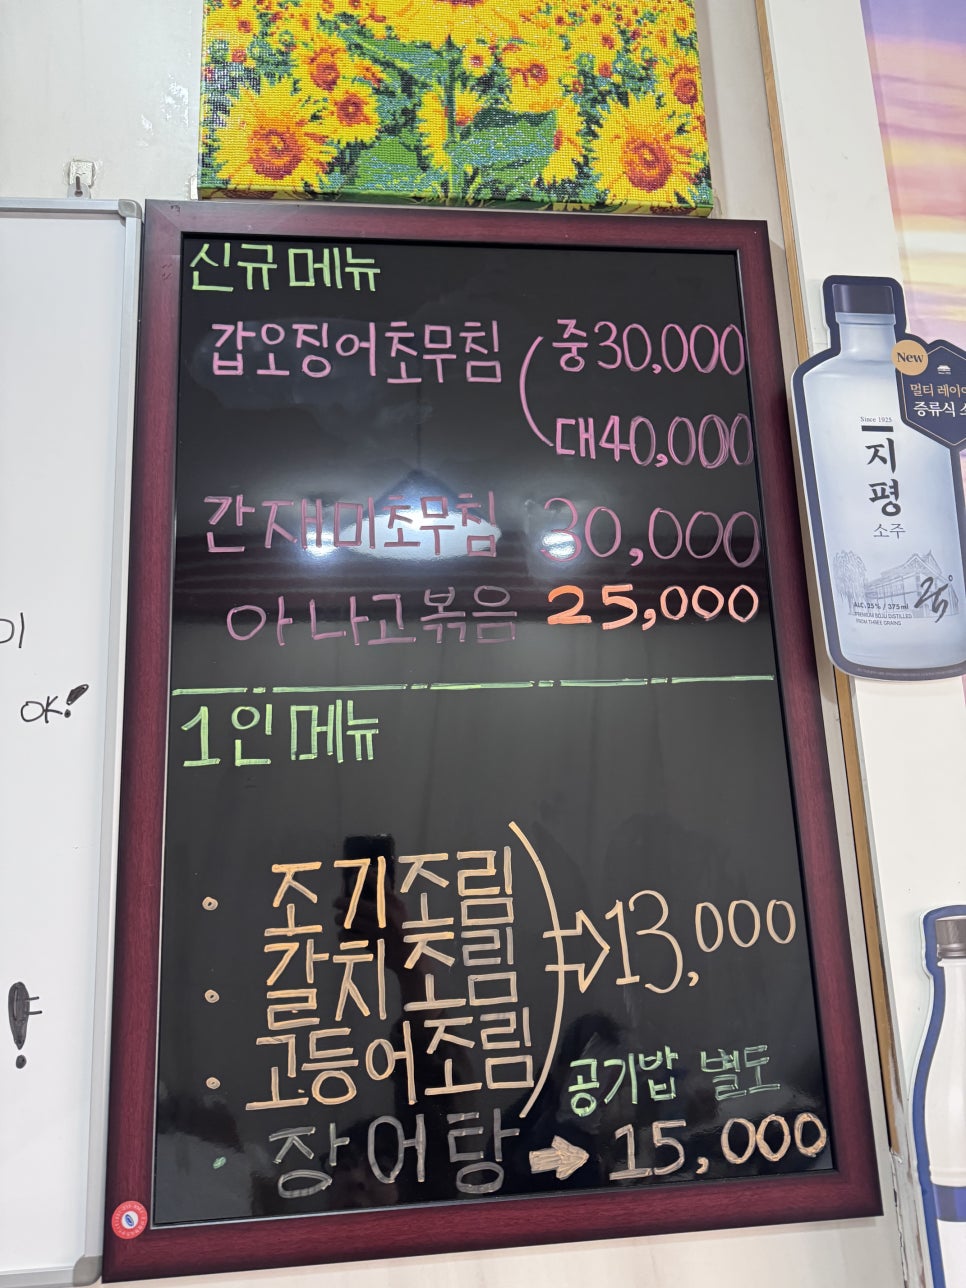 신규메뉴
갑오징어초무침 (중30,000
대40,000
간재미초무침 30,000
아나고볶음 25,000
1인메뉴
· 조기조림
· 갈치조림
· 고등어조림
) → 13,000
공기밥 별도
· 장어탕 → 15,000
OK!
New
멀티 레이어
증류식
Since 1925
지평
소주
25°
ALC.25% / 375ml
PREMIUM SOJU DISTILLED
FROM THREE GRAINS